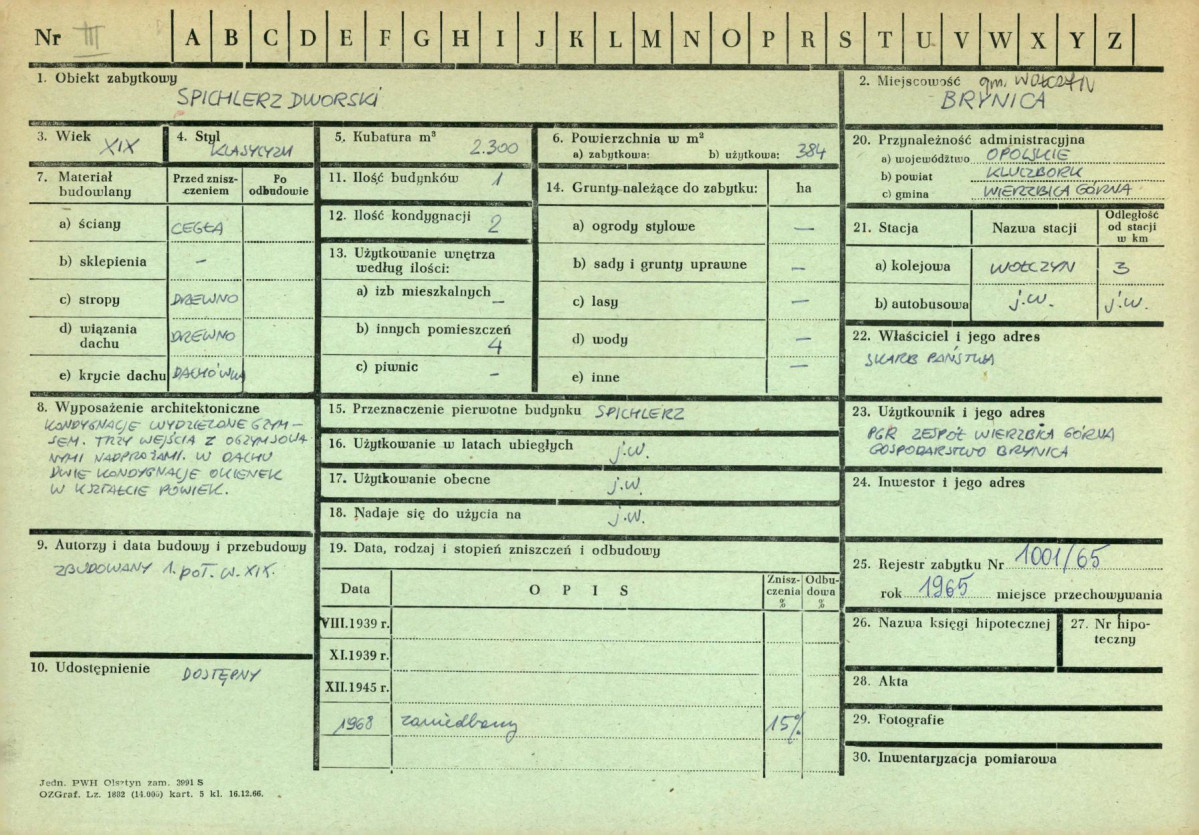 Nr III A B C D E F G H I J K L M N O P R S T U V W X Y Z
1. Obiekt zabytkowy
SPICHLERZ DWORSKI
2. Miejscowość gm. WOŁCZYN
BRYNICA
3. Wiek XIX
4. Styl
KLASYCYZM
5. Kubatura m³ 2.300
6. Powierzchnia w m²
a) zabytkowa: b) użytkowa: 384
7. Materiał budowlany
Przed zniszczeniem
Po odbudowie
a) ściany CEGŁA
b) sklepienia –
c) stropy DRZEWNO
d) wiązania dachu DRZEWNO
e) krycie dachu DACHÓWKA
8. Wyposażenie architektoniczne
KONDYGNACJE WYDZIELONE GZYM-
SEM. TRZY WEJŚCIA Z OGZYMSOWA
NYMI NADPROŻAMI. W DACHU
DWIE KONDYGNACJE OKIENEK
W KSZTAŁCIE POWIEK.
9. Autorzy i data budowy i przebudowy
ZBUDOWANY 1. POŁ. W. XIX.
10. Udostępnienie DOSTĘPNY
11. Ilość budynków 1
12. Ilość kondygnacji 2
13. Użytkowanie wnętrza
według ilości:
a) izb mieszkalnych –
b) innych pomieszczeń
4
c) piwnic –
14. Grunty należące do zabytku: ha
a) ogrody stylowe –
b) sady i grunty uprawne –
c) lasy –
d) wody –
e) inne –
15. Przeznaczenie pierwotne budynku SPICHLERZ
16. Użytkowanie w latach ubiegłych j.w.
17. Użytkowanie obecne j.w.
18. Nadaje się do użycia na j.w.
19. Data, rodzaj i stopień zniszczeń i odbudowy
Data OPIS Zniszczenia % Odbudowa %
VIII.1939 r.
XI.1939 r.
XII.1945 r.
1968 zaniedbany 15%
20. Przynależność administracyjna
a) województwo OPOLSKIE
b) powiat KLUCZBORK
c) gmina WIERZBICA GÓRNA
21. Stacja Nazwa stacji Odległość od stacji w km
a) kolejowa WOŁCZYN 3
b) autobusowa j.w. j.w.
22. Właściciel i jego adres
SKARB PAŃSTWA
23. Użytkownik i jego adres
PGR ZESPÓŁ WIERZBICA GÓRNA
GOSPODARSTWO BRYNICA
24. Inwestor i jego adres
25. Rejestr zabytku Nr 1001/65
rok 1965 miejsce przechowywania
26. Nazwa księgi hipotecznej
27. Nr hipo-
teczny
28. Akta
29. Fotografie
30. Inwentaryzacja pomiarowa
Jedn. PWH Olsztyn zam. 3991 S
OZGraf. Lz. 1882 (14.000) kart. 5 kl. 16.12.66.